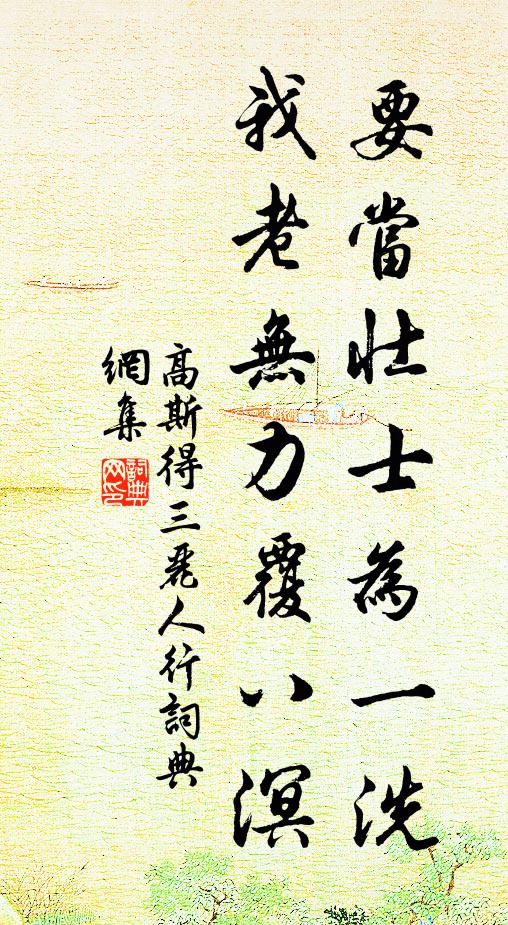 要當壯士為一洗
我老無力覆八溟
高斯得三麗人行詞典
網集
詞典
网印